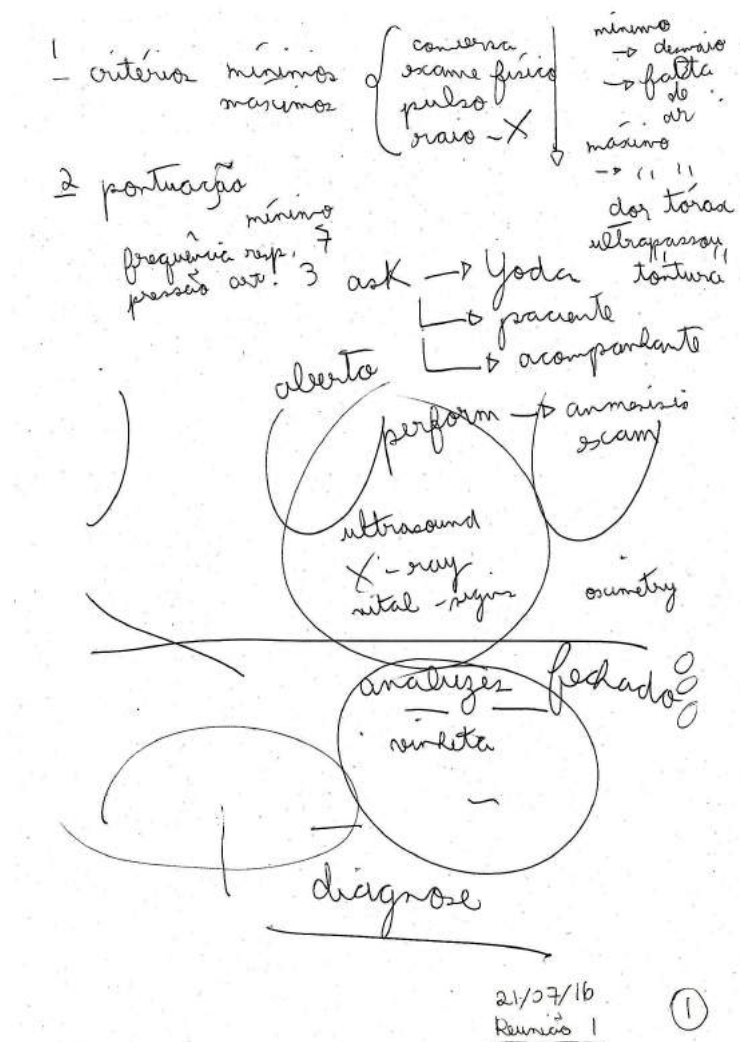 1 critérios mínimos
maximos
conversa
exame físico
pulso
raio-X
mínimo
→ desmaio
→ falta
de
ar
máximo
→ " "
dor tórax
ultrapassou
" tontura "
2 pontuação
mínimo
frequência resp. 7
pressão art. 3
ask → Yoda
→ paciente
→ acompanhante
aberto
perform → anmesisis
exam
ultrasound
X-ray
vital-signs
oximetry
analyzes
fechado
vinheta
diagnose
21/07/16
Reunião 1
1